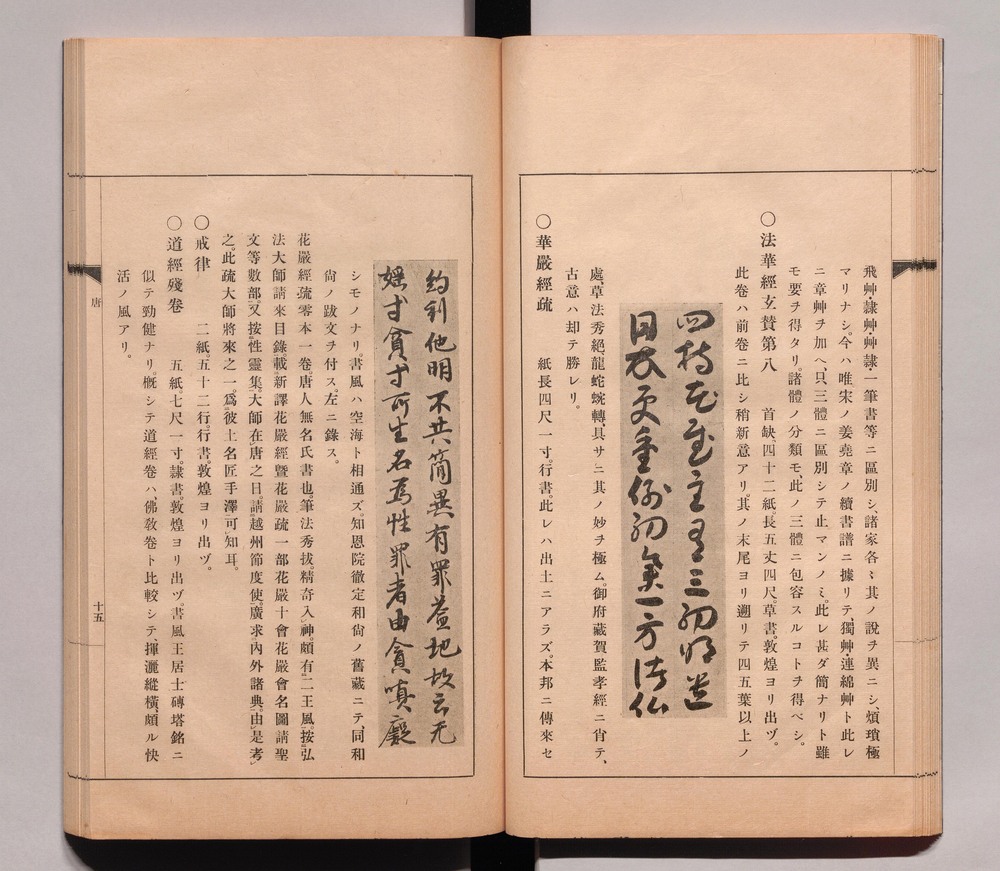 飛艸隷艸・艸隷一筆書等ニ區別シ、諸家各〻其ノ說ヲ異ニシ、煩瑣極
マリナシ。今ハ唯宋ノ姜堯章ノ續書譜ニ據リテ、獨艸・連綿艸ト此レ
ニ章艸ヲ加ヘ、只三體ニ區別シテ止マンノミ。此レ甚ダ簡ナリト雖
モ要ヲ得タリ。諸體ノ分類モ、此ノ三體ニ包容スルコトヲ得ベシ。
〇法華經玄贊第八　首缺、四十二紙、長五丈四尺。草書。敦煌ヨリ出ヅ。
此卷ハ前卷ニ比シ稍新意アリ。其ノ末尾ヨリ遡リテ四五葉以上ノ
處、草法秀絕、龍蛇蜿轉、具サニ其ノ妙ヲ極ム。御府藏賀監孝經ニ肖テ、
古意ハ却テ勝レリ。
〇華嚴經疏　紙長四尺一寸。行書。此レハ出土ニアラズ。本邦ニ傳來セ
約利他明不共簡異有罪益地故云无
婬才貪才所生名為性罪者由貪嗔癡
シモノナリ。書風ハ空海ト相通ズ。知恩院徹定和尙ノ舊藏ニテ、同和
尙ノ跋文ヲ付ス。左ニ錄ス。
花嚴經疏零本一卷。唐人無名氏書也。筆法秀拔。精奇入神。頗有二王風。按弘
法大師請來目錄。載新譯花嚴經曁花嚴疏一部花嚴十會花嚴會名圖請聖
文等數部。又按性靈集。大師在唐之日。請越州節度使。廣求內外諸典。由是考
之。此疏大師將來之一。爲彼上名匠手澤。可知耳。
〇戒律　二紙五十二行。行書敦煌ヨリ出ヅ。
〇道經殘卷　五紙、七尺一寸隷書。敦煌ヨリ出ヅ。書風王居士磚塔銘ニ
似テ勁健ナリ。概シテ道經卷ハ、佛敎卷ト比較シテ、揮灑縱橫、頗ル快
活ノ風アリ。
唐
十五